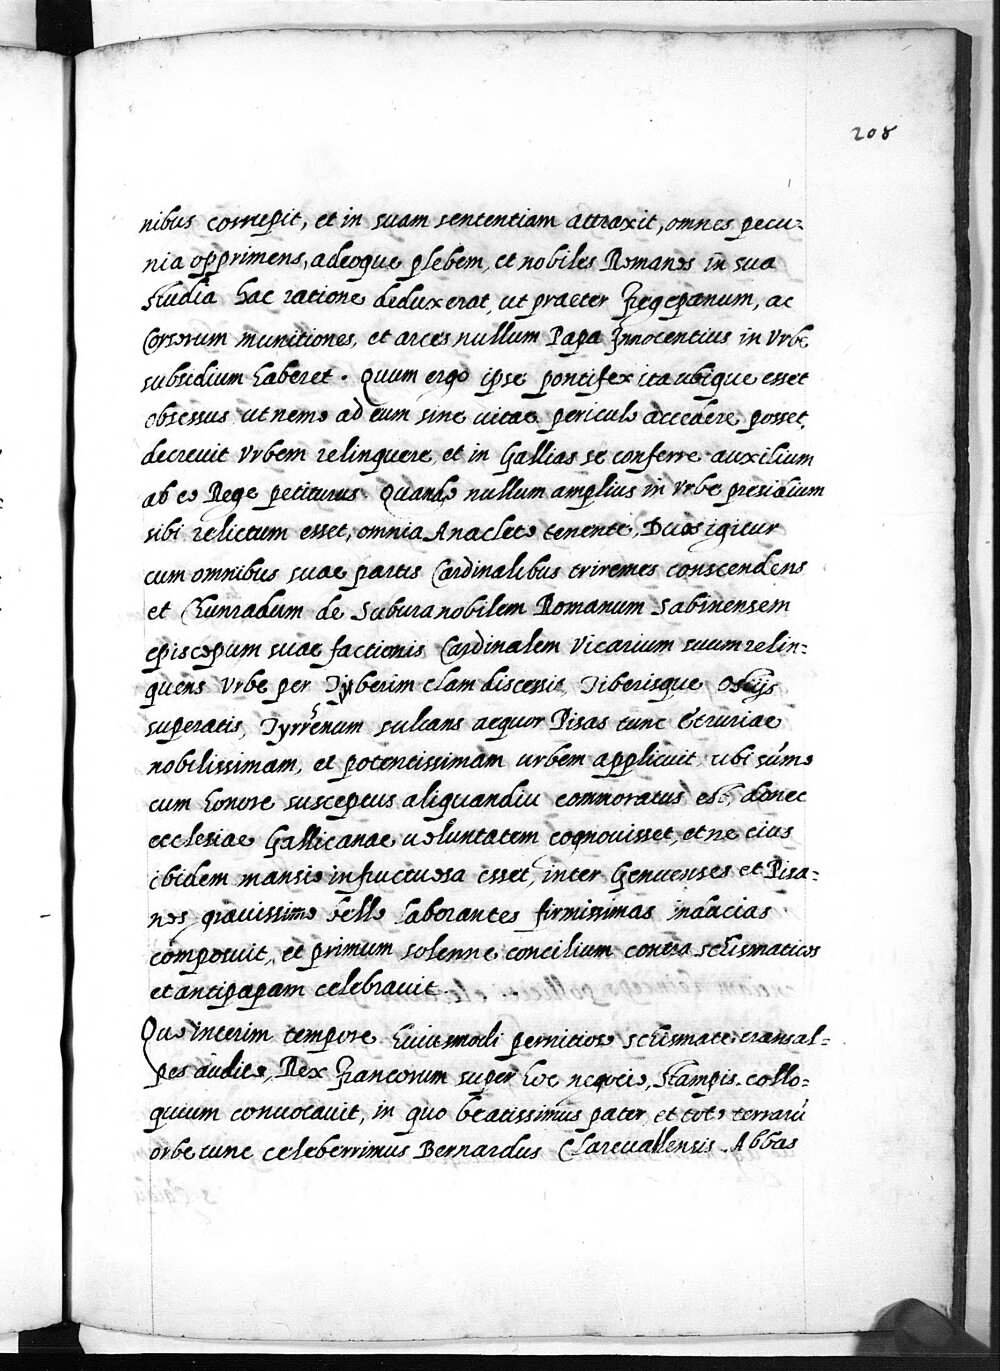 208
nibus corrupit, et in suam sententiam attraxit, omnes pecu-
nia opprimens, adeoque plebem, et nobiles Romanos in sua
studia hac ratione deduxerat, ut praeter Fregepanum, ac
Corsorum munitiones, et arces nullum Papa Innocentius in Urbe
subsidium haberet. Quum ergo ipse pontifex ita ubique esset
obsessus ut nemo ad eum sine vitae periculo accedere posset,
decrevit Urbem relinquere, et in Gallias se conferre auxilium
ab eo Rege petiturus. Quando nullum amplius in Urbe presidium
sibi relictum esset, omnia Anacleto tenente, Duas igitur
cum omnibus suae partis Cardinalibus triremes conscendens
et Chunradum de Subura nobilem Romanum Sabinensem
episcopum suae factionis Cardinalem Vicarium suum relin-
quens Urbe per Tyberim clam discessit, Tiberisque Ostijs
superatis, Tyrrenum sulcans aequor Pisas tunc Etruriae
nobilissimam, et potentissimam urbem applicuit, ubi súmo
cum honore susceptus aliquandiu commoratus est, donec
ecclesiae Gallicanae voluntatem cognovisset, et ne eius
ibidem mansio infructuosa esset, inter Genuenses et Pisa-
nos gravissimo bello laborantes firmissimas inducias
composuit, et primum solenne concilium contra schismaticos
et antipapam celebravit.
Quo interim tempore huiusmodi pernitioso schismate transal-
pes audito, Rex Francorum super hoc negocio, Stampis collo-
quium convocavit, in quo beatissimus pater, et toto terrarū
orbe tunc celeberrimus Bernardus Clarevallensis Abbas